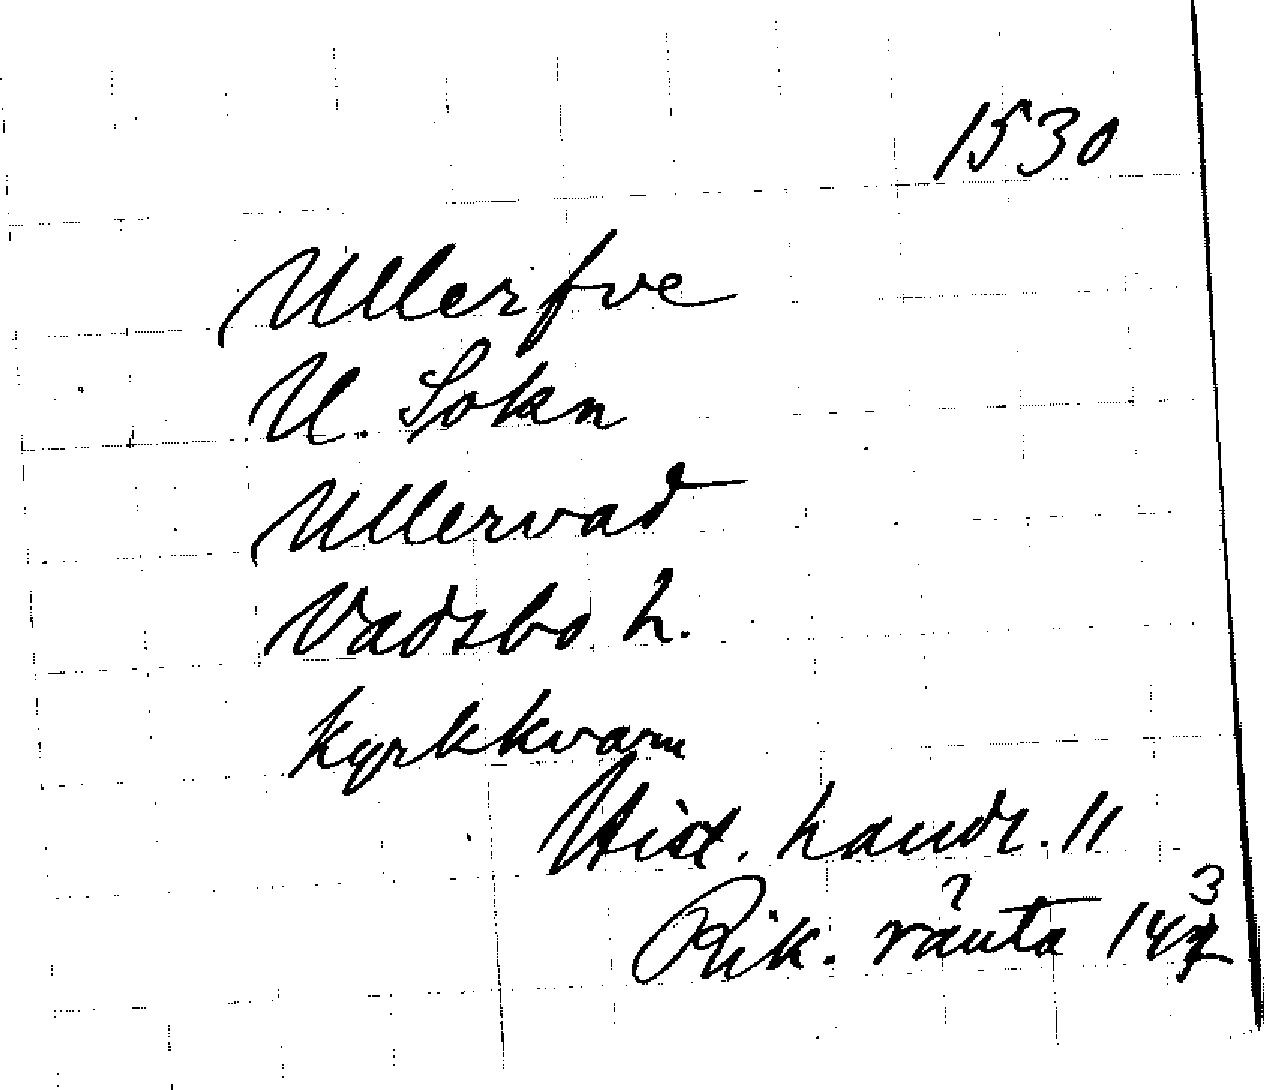 1530
Ullerfve
U. Sokn
Ullervad
Vadsbo h.
Kyrkkvarn
Hist. handl. 11
Rik. ränta 143